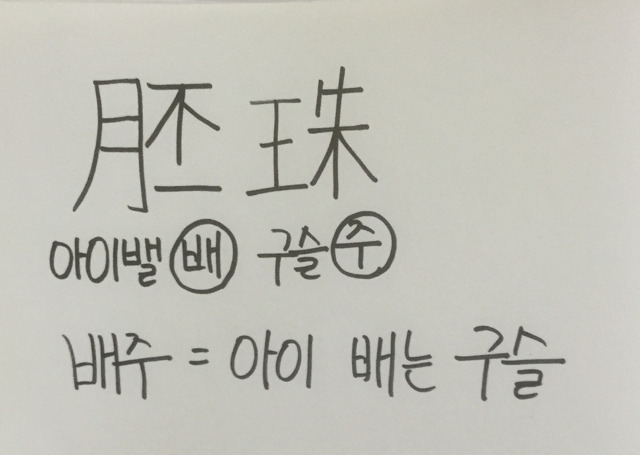 胚珠
아이밸 배 구슬 주
배주 = 아이 배는 구슬